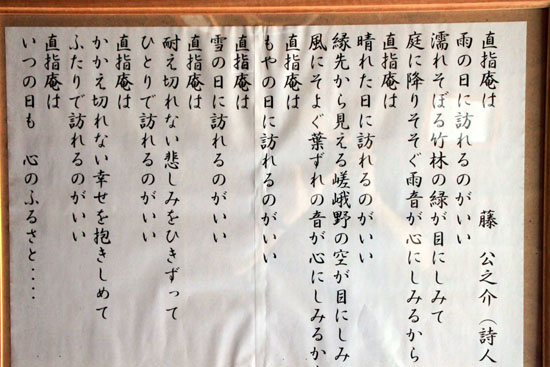 直指庵は　　　藤　公之介（詩人
雨の日に訪れるのがいい
濡れそぼる竹林の緑が目にしみて
庭に降りそそぐ雨音が心にしみるから
直指庵は
晴れた日に訪れるのがいい
縁先から見える嵯峨野の空が目にしみ
風にそよぐ葉ずれの音が心にしみるか
直指庵は
もやの日に訪れるのがいい
直指庵は
雪の日に訪れるのがいい
直指庵は
耐え切れない悲しみをひきずって
ひとりで訪れるのがいい
直指庵は
かかえ切れない幸せを抱きしめて
ふたりで訪れるのがいい
直指庵は
いつの日も　心のふるさと・・・・